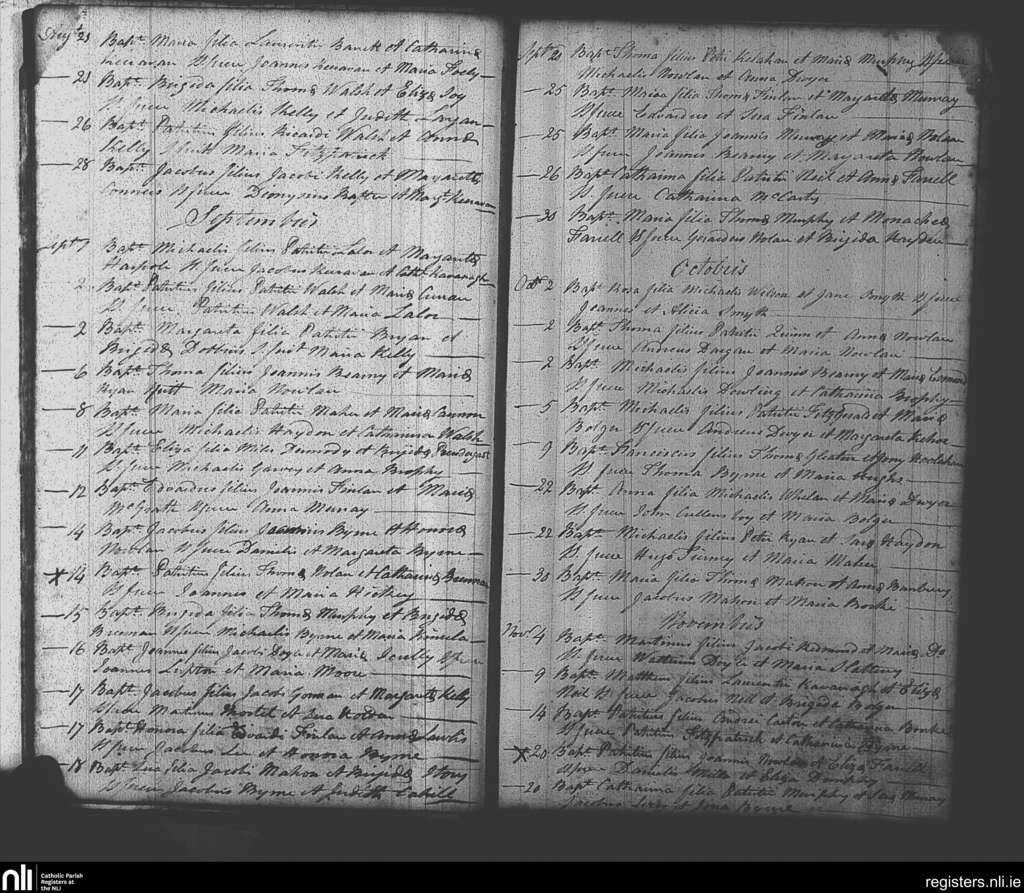 Augt 21 Bapt. Maria filia Laurentii Barrett et Catharina
Keeravan Spsres Joannis Keeravan et Maria Foely
— 21 Bapt. Brigida filia Thoms Walsh et Eliza Joy
Spsres Michaelis Kelly et Judith
— 26 Bapt. Patritius filius Ricardi Walsh et Anna
Kelly Maria Fitzpatrick
— 28 Bapt. Jacobus filius Jacobi Kelly et Margareta
Connors Spsres Dionysius et Margt Keeravan
Septembris
Sept 1 Bapt. Michaelis filius Patritii Lalor et Margareta
Harpole Spsres Jacobus Keeravan et Cath Kavanagh
2 Bapt. Patritius filius Patritii Walsh et Maria Curran
Spsres Patritii Walsh et Maria Lalor
— 2 Bapt. Margareta filia Patritii Bryan et
Brigida Dobbins Maria Kelly
— 6 Bapt. Thoma filius Joannis Beamy et Maria
Ryan Maria Nowlan
— 8 Bapt. Maria filia Patritii Maher et Maria Cannon
Spsres Michaelis Haydon et Catharina Walsh
— 11 Bapt. Eliza filia Miles Dunnody et Brigida Prendergast
Spsres Michaelis Garvey et Anna Brophy
— 12 Bapt. Edvardus filius Joannis Finlan et Maria
McGrath Spsres Anna Murray
— 14 Bapt. Jacobus filius Joannis Byrne et Honora
Nowlan Spsres Danielis et Margareta Byrne
X 14 Bapt. Patritius filius Thoms Nolan et Catharina Brennan
Spsres Joannis et Maria Hickey
— 15 Bapt. Brigida filia Thoms Murphy et Brigida
Brennan Spsres Michaelis Byrne et Maria Kinsela
— 16 Bapt. Joannes filius Jacobi Doyle et Maria Scully Spsres
Joannes Lipton et Maria Moore
— 17 Bapt. Jacobus filius Jacobi Gorman et Margareta Kelly
Spsres et
— 17 Bapt. Honora filia Edvardi Finlan et Anna
Spsres Jacobus Lee et Honora Byrne
— 18 Bapt. filia Jacobi Mahon et Brigida Story
Spsres Jacobus Byrne et Judith Cahill
Sept 20 Bapt. Thoma filius Petri Kelahan et Maria Murphy Spsres
Michaelis Nowlan et Anna Dwyer
— 25 Bapt. Maria filia Thoms Finlan et Margareta Murray
Spsres Edvardus et Finlan
— 25 Bapt. Maria filia Joannis Murray et Maria Nolan
Spsres Joannis Beamy et Margareta Nowlan
— 26 Bapt. Catharina filia Patritii Neil et Anna Farrell
Spsres Catharina McCarty
— 30 Bapt. Maria filia Thoms Murphy et Monachea
Farrell Spsres Gerardus Nolan et Brigida Hayden
Octobris
Octr 2 Bapt. Rosa filia Michaelis Wilson et Jane Smyth Spsres
Joannes et Alicia Smyth
— 2 Bapt. Thoma filius Patritii Quinn et Anna Nowlan
Spsres Andreas Dargan et Maria Nowlan
— 2 Bapt. Michaelis filius Joannis Beamy et Maria
Spsres Michaelis Dowling et Catharina Brophy
— 5 Bapt. Michaelis filius Patritii Fitzgerald et Maria
Bolger Spsres Andreas Dwyer et Margareta Kehoe
9 Bapt. Franciscus filius Thoms Gleeson et Jony Hoolahan
Spsres Thoma Byrne et Maria
— 22 Bapt. Anna filia Michaelis Whelan et Maria Dwyer
Spsres John Cullen boy et Maria Bolger
— 22 Bapt. Michaelis filius Petri Ryan et Haydon
Spsres Hugo Tierney et Maria Maher
— 30 Bapt. Maria filia Thoms Mahon et Anna Banbury
Spsres Jacobus Mahon et Maria Bourke
Novembris
Novr 4 Bapt. Martinus filius Jacobi Redmond et Maria Do
Spsres Doyle et Maria Slattery
— 9 Bapt. Matthew filius Laurentii Kavanagh et Eliza
Neil Spsres Jacobus Neil et Brigida Bolger
— 14 Bapt. Patritius filius Andrei et Catharina Bourke
Spsres Patritii Fitzpatrick et Catharina Byrne
X 20 Bapt. Patritii filius Joannis Nowlan et Eliza Farrell
Spsres Danielis et Eliza Dempsey
— 20 Bapt. Catharina filia Patritii Murphy et Murray
Jacobus et Byrne
nli
Catholic Parish
Registers at
the NLI
registers.nli.ie